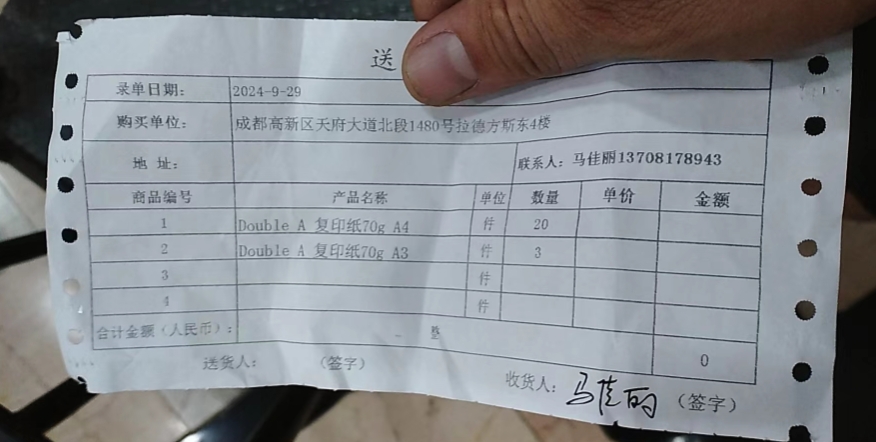 送
录单日期： 2024-9-29
购买单位： 成都高新区天府大道北段1480号拉德方斯东4楼
地 址： 联系人：马佳丽13708178943
商品编号 产品名称 单位 数量 单价 金额
1 Double A 复印纸70g A4 件 20
2 Double A 复印纸70g A3 件 3
3 件
4 件
合计金额（人民币）： 整
0
送货人： （签字）
收货人： 马佳丽 （签字）